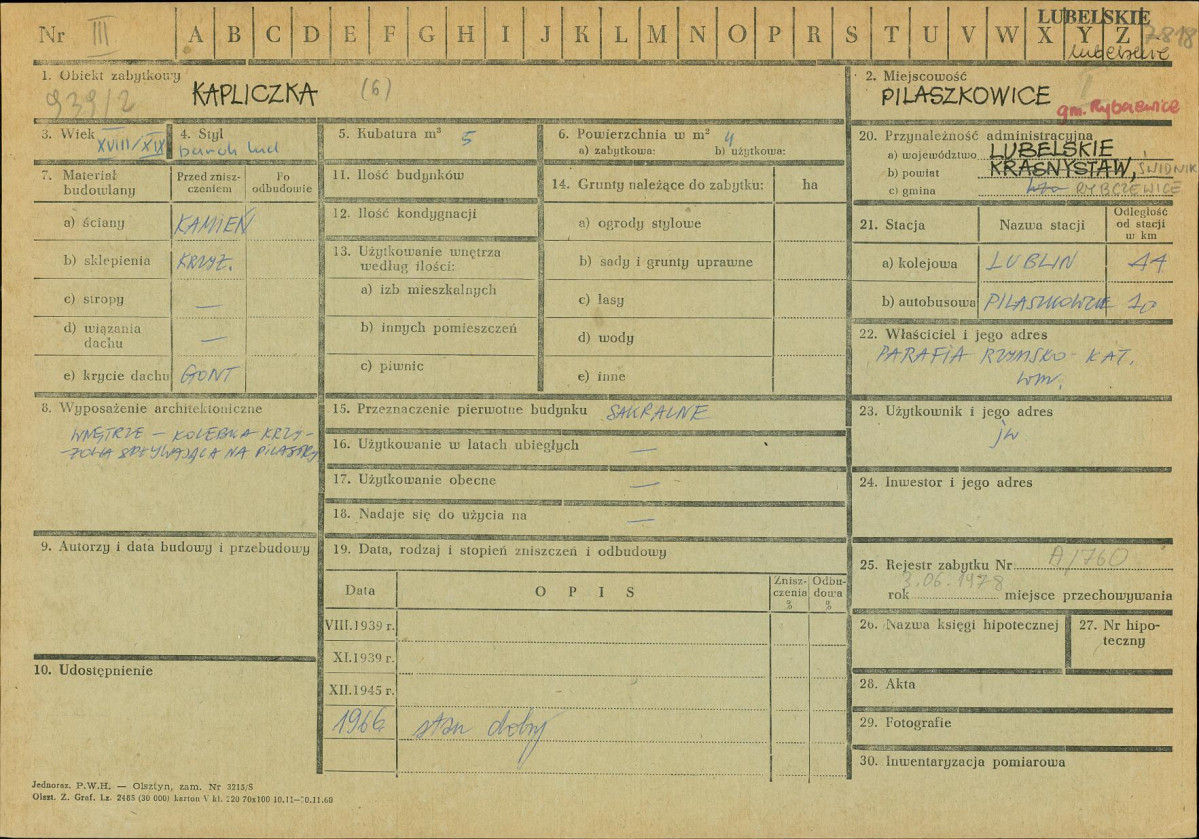 Nr III A B C D E F G H I J K L M N O P R S T U V W X Y Z
LUBELSKIE
7818
lubelskie
1. Obiekt zabytkowy
KAPLICZKA (6)
939/2
2. Miejscowość
PILASZKOWICE
gm. Rybczewice
3. Wiek
XVIII/XIX
4. Styl
barok lud
5. Kubatura m³ 5
6. Powierzchnia w m² 4
a) zabytkowa: b) użytkowa:
7. Materiał budowlany
Przed zniszczeniem
Po odbudowie
a) ściany KAMIEŃ
b) sklepienia KRZYŻ.
c) stropy —
d) wiązania dachu —
e) krycie dachu GONT
8. Wyposażenie architektoniczne
WNĘTRZE – KOLEBKA KRZY-
ŻOWA SPŁYWAJĄCA NA PILASTRY
9. Autorzy i data budowy i przebudowy
10. Udostępnienie
11. Ilość budynków
12. Ilość kondygnacji
13. Użytkowanie wnętrza
według ilości:
a) izb mieszkalnych
b) innych pomieszczeń
c) piwnic
14. Grunty należące do zabytku: ha
a) ogrody stylowe
b) sady i grunty uprawne
c) lasy
d) wody
e) inne
15. Przeznaczenie pierwotne budynku SAKRALNE
16. Użytkowanie w latach ubiegłych —
17. Użytkowanie obecne —
18. Nadaje się do użycia na —
19. Data, rodzaj i stopień zniszczeń i odbudowy
Data OPIS Zniszczenia % Odbudowa %
VIII.1939 r.
XI.1939 r.
XII.1945 r.
1966 stan dobry
20. Przynależność administracyjna
a) województwo LUBELSKIE
b) powiat KRASNYSTAW, ŚWIDNIK
c) gmina RYBCZEWICE
21. Stacja Nazwa stacji Odległość od stacji w km
a) kolejowa LUBLIN 44
b) autobusowa PILASZKOWICE 10
22. Właściciel i jego adres
PARAFIA RZYMSKO-KAT.
wm.
23. Użytkownik i jego adres
jw
24. Inwestor i jego adres
25. Rejestr zabytku Nr A/760
rok 3.06.1978 miejsce przechowywania
26. Nazwa księgi hipotecznej
27. Nr hipo-
teczny
28. Akta
29. Fotografie
30. Inwentaryzacja pomiarowa
Jednoraz. P.W.H. — Olsztyn, zam. Nr 3215/S
Olszt. Z. Graf. Lz. 2485 (30 000) karton V kl. 220 70x100 10.11—10.11.60